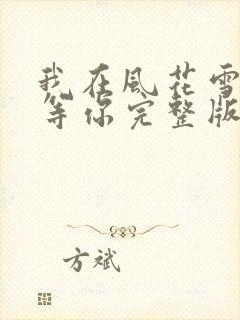 我在風花雪
等你完整版
方斌